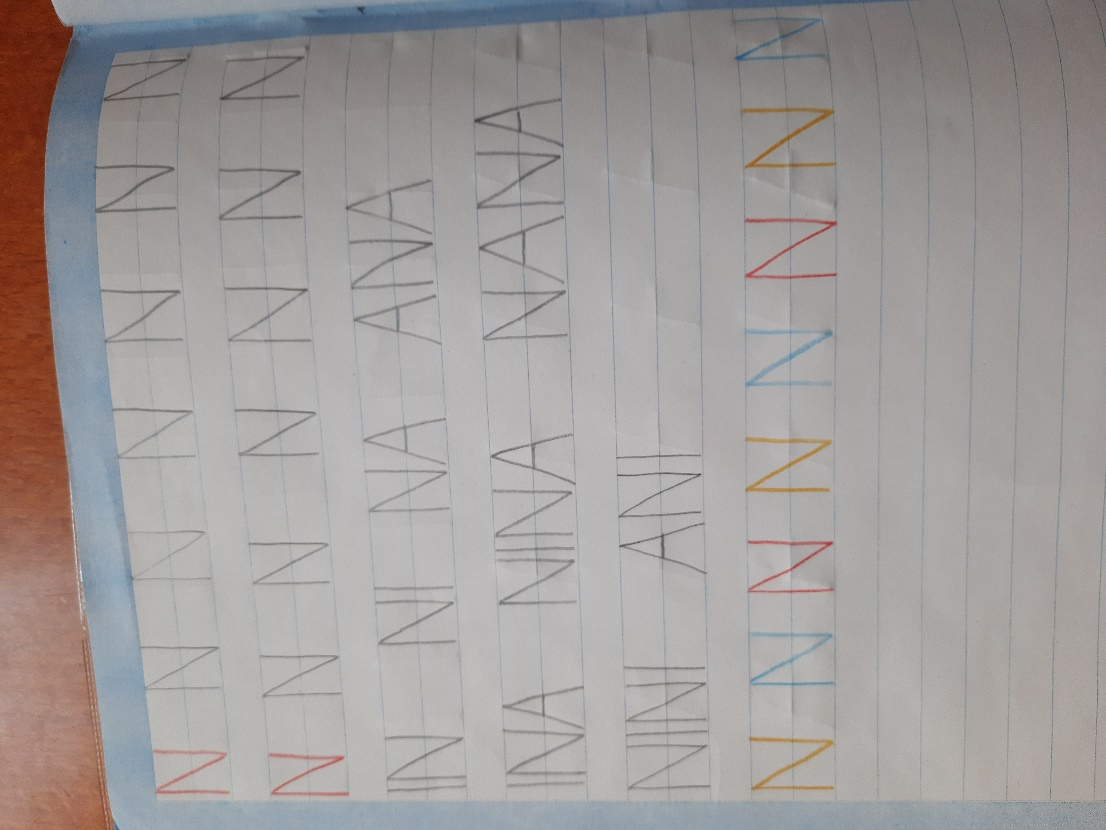 N N N N N N N
N N N N N N N
IN NI NA ANA
INA NINA NANA
NINI ANI
N N N N N N N N